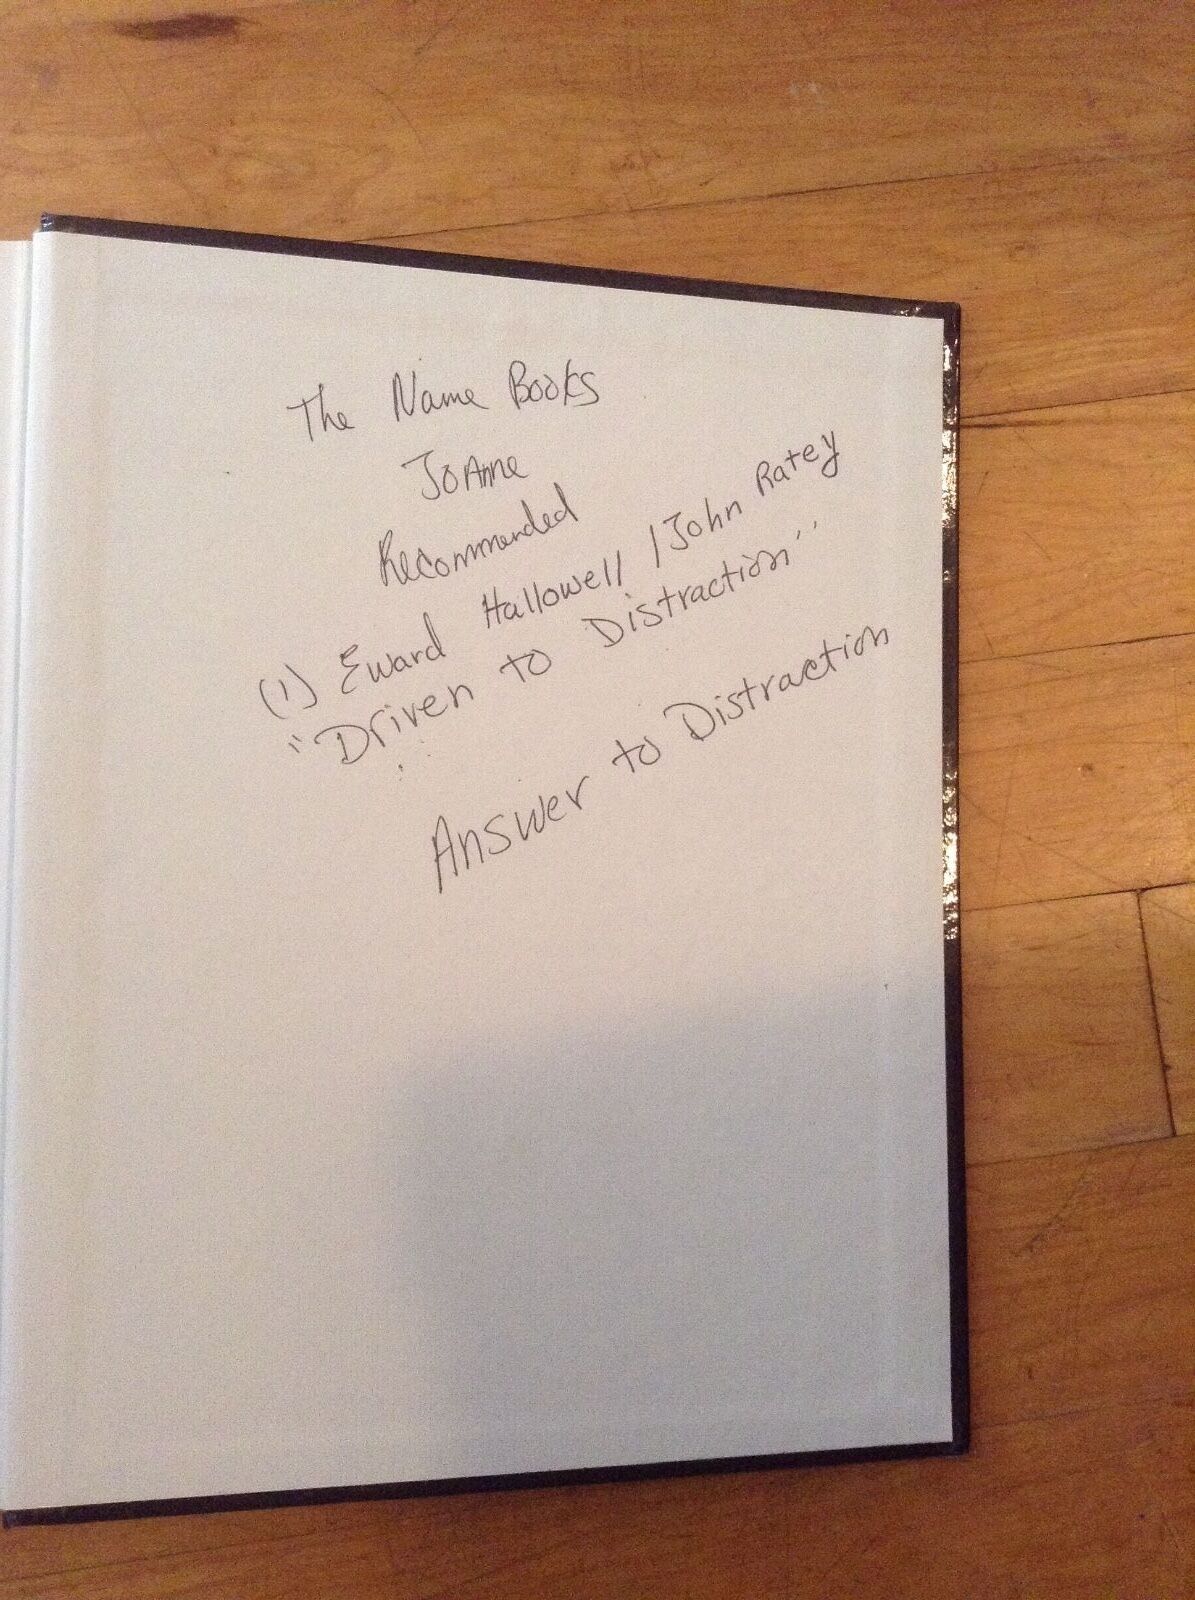 The Name Books
JoAnne
Recommended
(1) Eward Hallowell / John Ratey
"Driven to Distraction"
Answer to Distraction